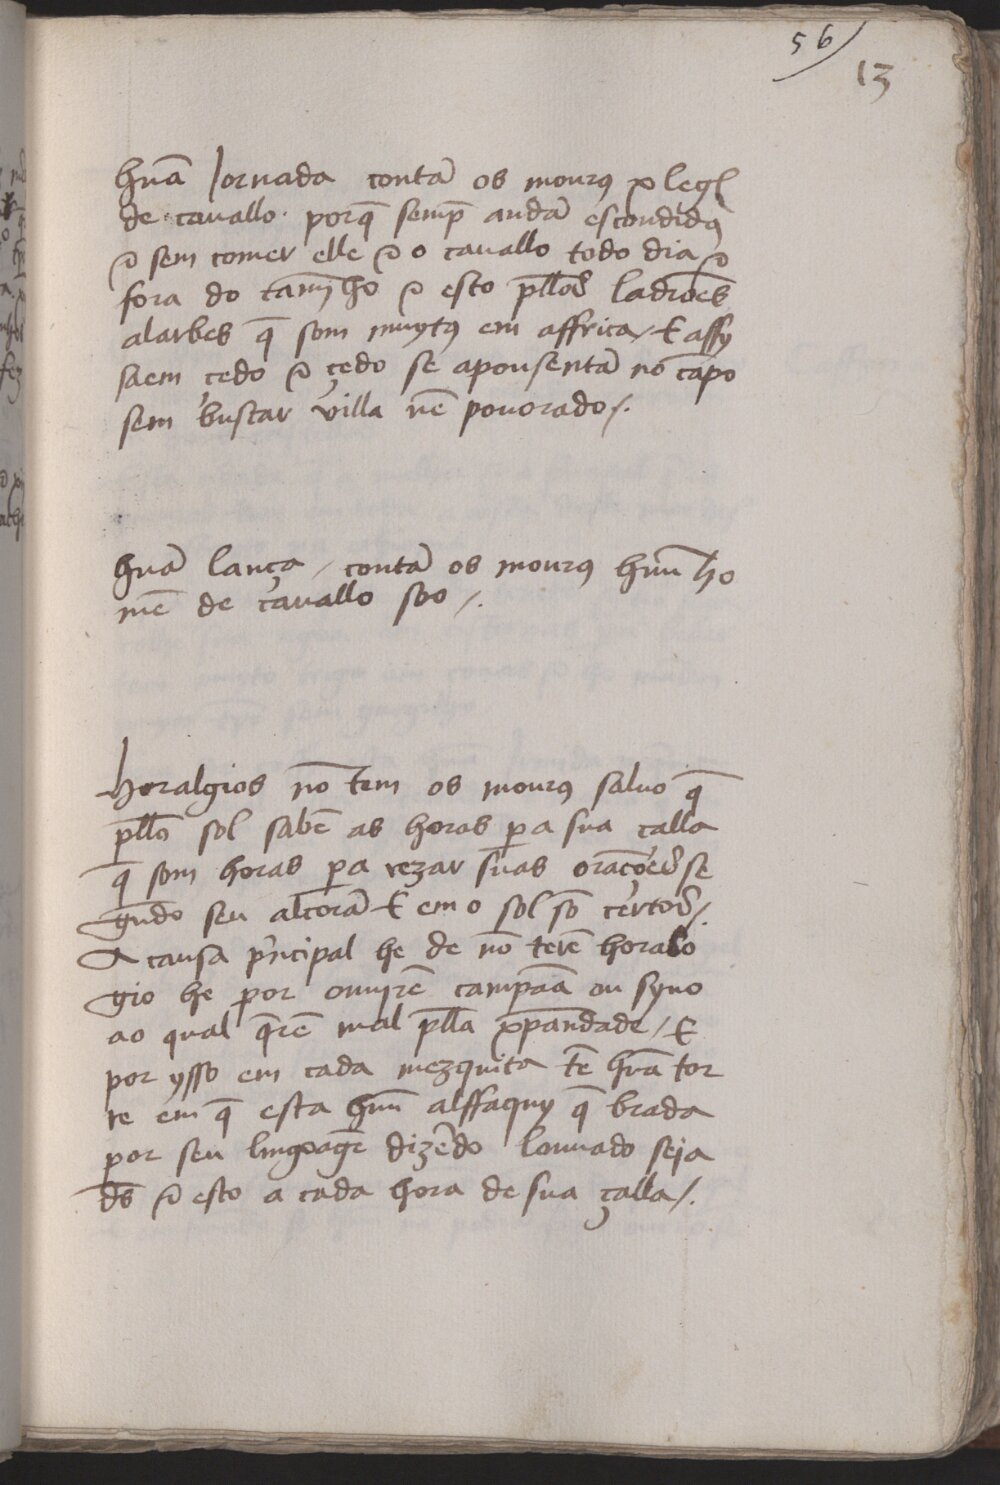 56
13
huã Jornada contã os mourꝯ x leg̃l
de cauallo. porq̃ semp̃ andã escondidꝯ
⁊ sem comer elle ⁊ o cauallo todo dia ⁊
fora do camĩho ⁊ esto pllos ladroẽs
alarbes q̃ som muytꝯ em affrica / E assy
saem cedo ⁊ çedo se apousentã nõ cãpo
sem buscar villa nẽ pouorado /.
huã lança / contã os mourꝯ hũu ho
mẽ de cauallo soo /.
horalgios nõ tem os mourꝯ saluo q̃
pllo sol sabẽ as horas pa sua çalla
q̃ som horas pa rezar suas oraçoẽs se
gũdo seu alcorã E em o sol sõ certos /.
A causa p̃ncipal he de nõ terẽ horalo
gio he por ouuyrẽ campãa ou syno
ao qual q̃rẽ mal plla xp̃andade / E
por ysso em cada mezquita tẽ huã tor
re em q̃ esta hũu alffaquy q̃ brada
por seu lingoagẽ dizẽdo louuado seja
ds̃ ⁊ esto a cada hora de sua çalla /.